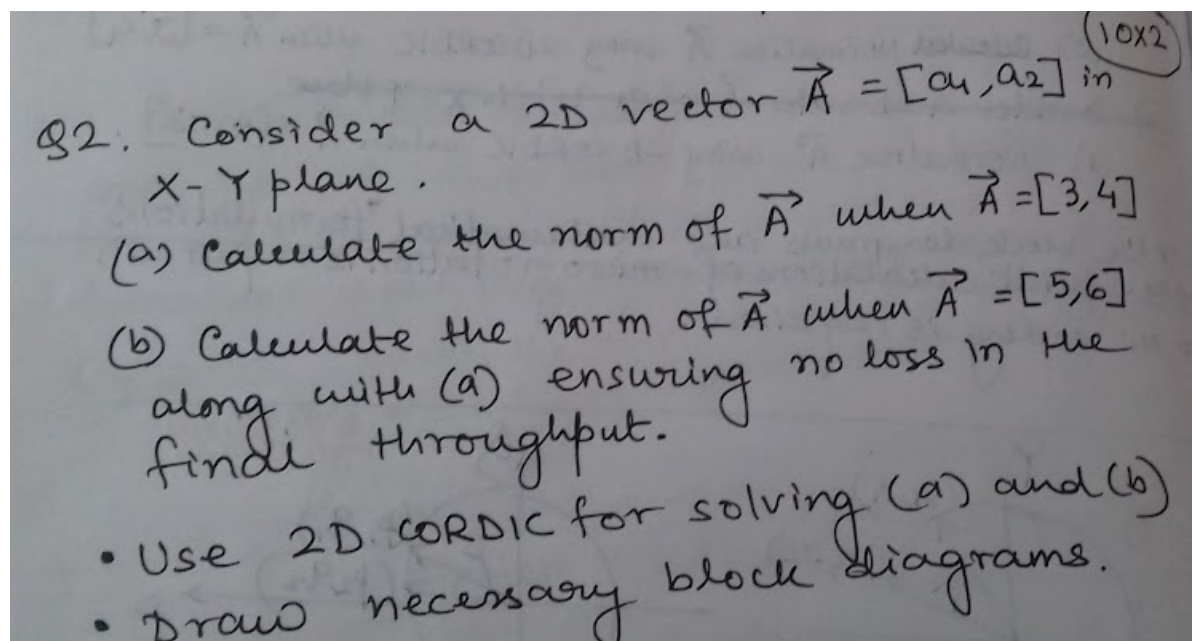 (10x2)
Q2. Consider a 2D vector A⃗ = [a1, a2] in
X-Y plane.
(a) Calculate the norm of A⃗ when A⃗ = [3,4]
(b) Calculate the norm of A⃗ when A⃗ = [5,6]
along with (a) ensuring no loss in the
final throughput.
• Use 2D CORDIC for solving (a) and (b)
• Draw necessary block diagrams.